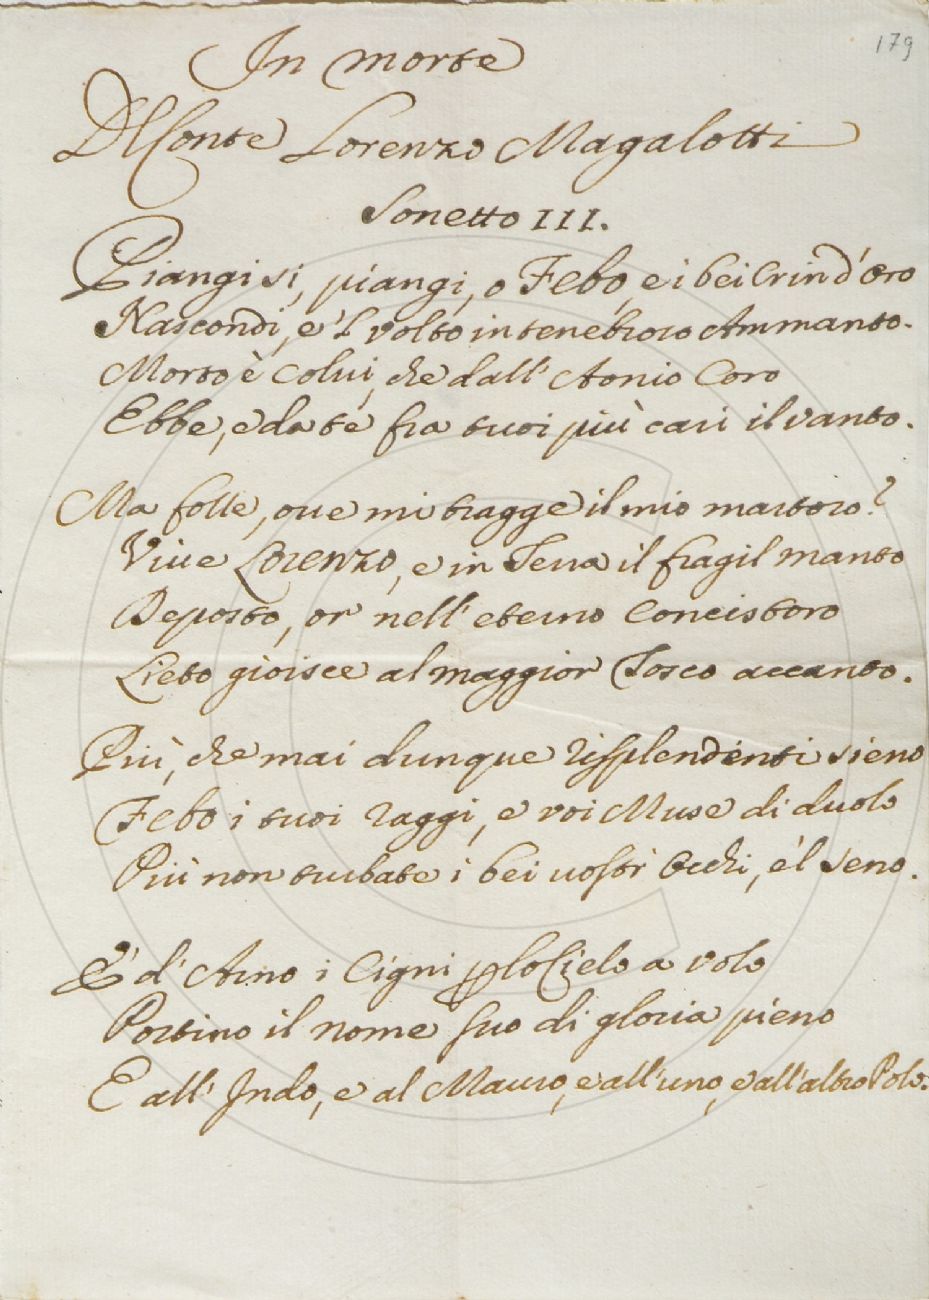 179
In morte
Del Conte Lorenzo Magalotti
Sonetto III.
Piangi si, piangi, o Febo, e i bei Crin d'Oro
Nascondi, e 'l volto in tenebroso Ammanto.
Morto è Colui, che dall' Aonio Coro
Ebbe, e da te fra tuoi più cari il vanto.
Ma folle, oue mi tragge il mio martoro?
Viue Lorenzo, e in Terra il fragil manto
Deposto, or nell' eterno Concistoro
Lieto gioisce al maggior Tosco accanto.
Più, che mai dunque risplendenti sieno
Febo i tuoi raggi, e voi Muse di duolo
Più non turbate i bei uostri Occhi, e 'l seno.
E d' Arno i Cigni per lo Cielo a volo
Portino il nome suo di gloria pieno
E all' Indo, e al Mauro, e all' uno, e all' altro Polo.